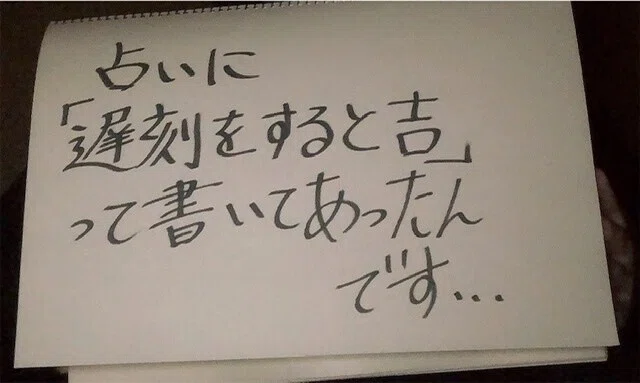 占いに
「遅刻をすると吉」
って書いてあったん
です...